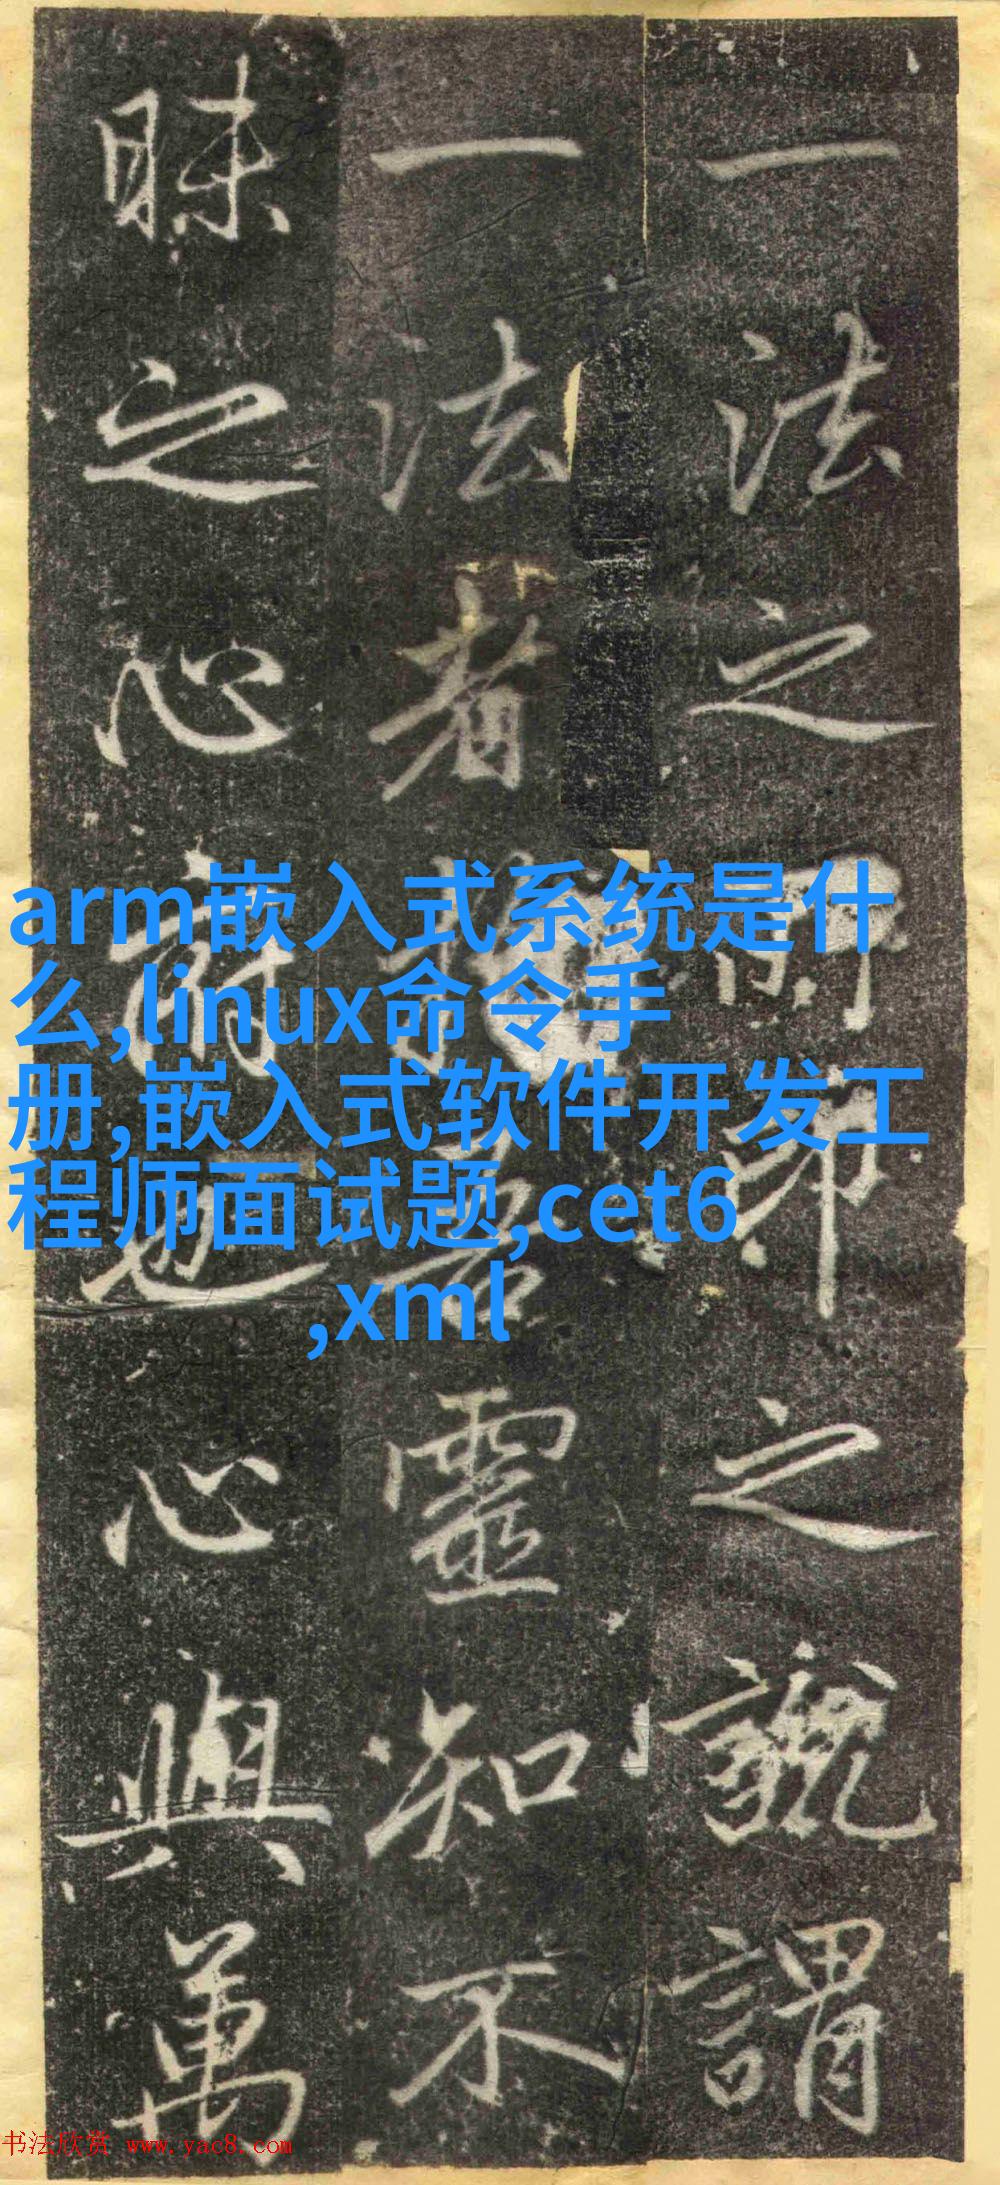 一法之所印之謂
一法者靈知不
昧之心也心與萬
arm嵌入式系统是什
么,linux命令手
册,嵌入式软件开发工
程师面试题,cet6
,xml
书法欣赏 www.yac8.com